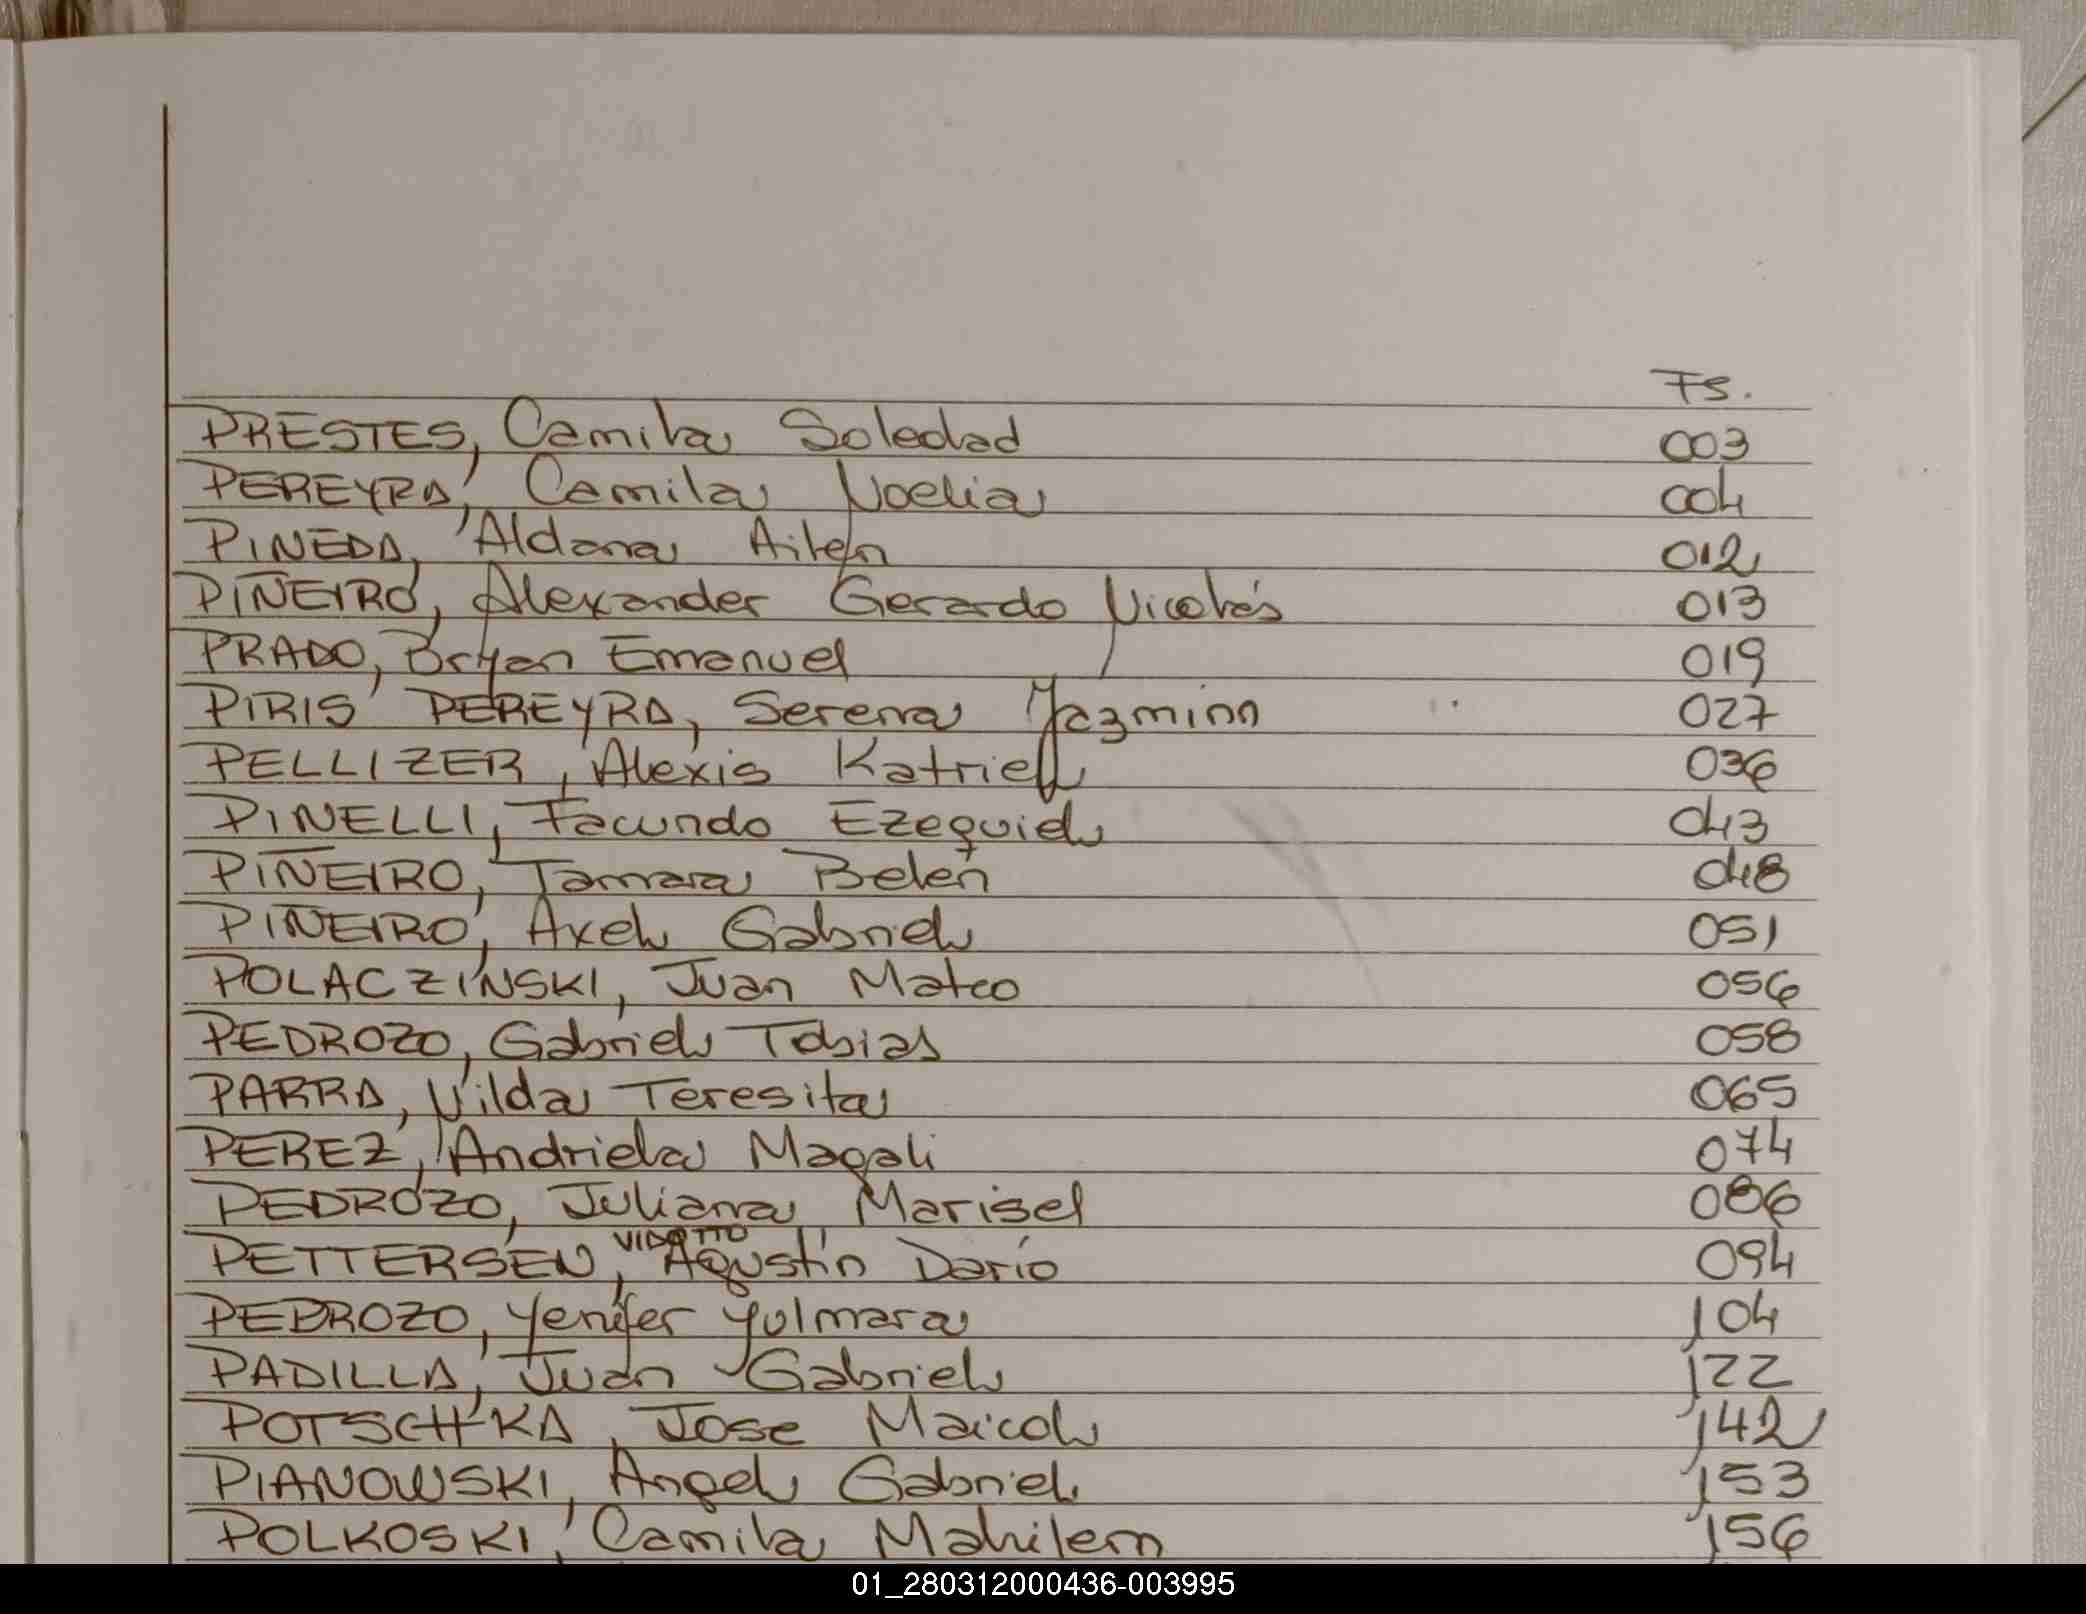 Fs.
PRESTES, Camila Soledad 003
PEREYRA, Camila Noelia 004
PINEDA, Aldana Ailen 012
PIÑEIRO, Alexander Gerardo Nicolás 013
PRADO, Bryan Emanuel 019
PIRIS PEREYRA, Serena Jazminn 027
PELLIZER, Alexis Katriel 036
PINELLI, Facundo Ezequiel 043
PIÑEIRO, Tamara Belén 048
PIÑEIRO, Axel Gabriel 051
POLACZINSKI, Juan Mateo 056
PEDROZO, Gabriel Tobias 058
PARRA, Nilda Teresita 065
PEREZ, Andriela Magali 074
PEDROZO, Juliana Marisel 086
VIDOTTO
PETTERSEN, Agustín Darío 094
PEDROZO, Yenifer Yulmara 104
PADILLA, Juan Gabriel 122
POTSCHKA, Jose Maicol 142
PIANOWSKI, Angel Gabriel 153
POLKOSKI, Camila Mahilem 156
01_280312000436-003995